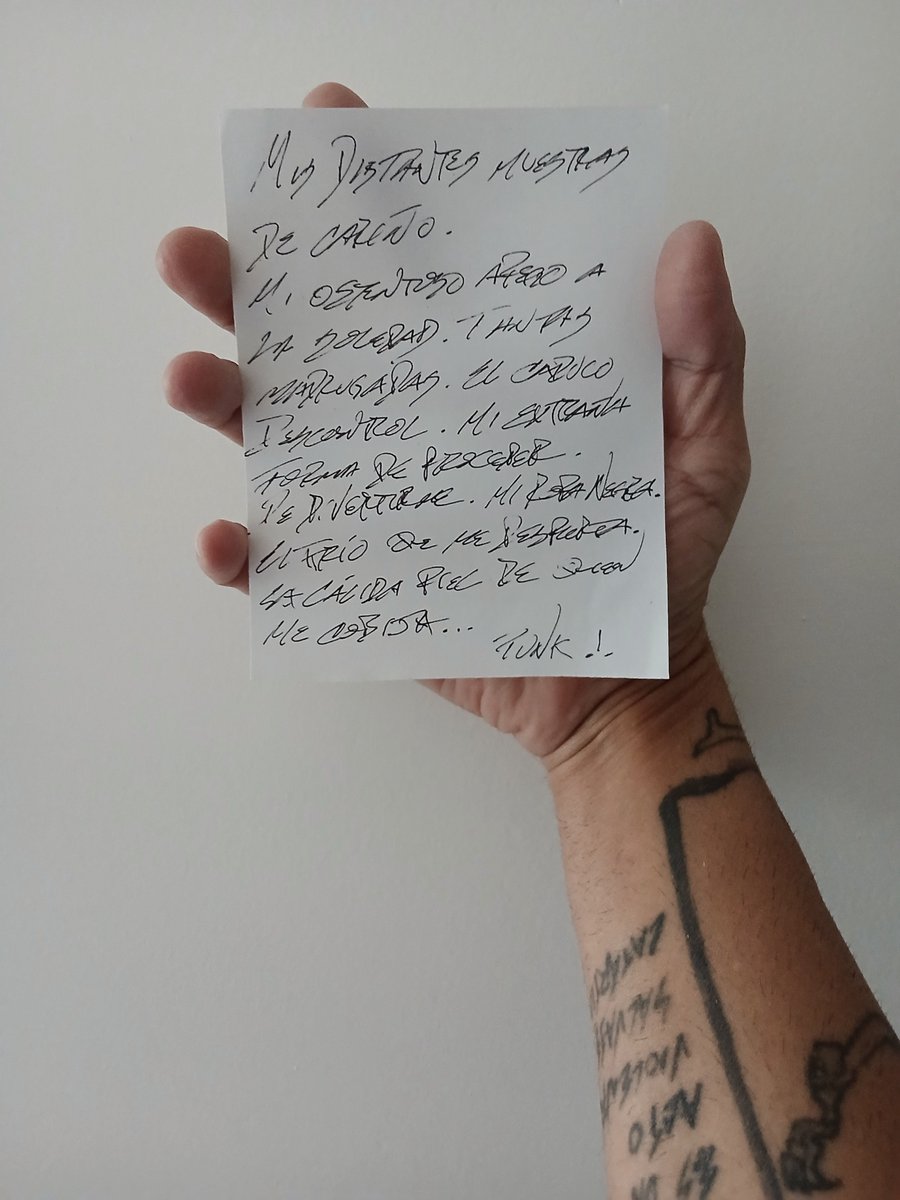 Mis Distantes muestras
de cariño.
Mi ostentoso apego a
la soledad. Tantas
madrugadas. El
Descontrol. Mi extraña
forma de proceder.
De divertirme. Mi ropa negra.
El frío que me despierta.
La cálida piel de quien
me cobija...
Tunk!.
ES UN
ACTO